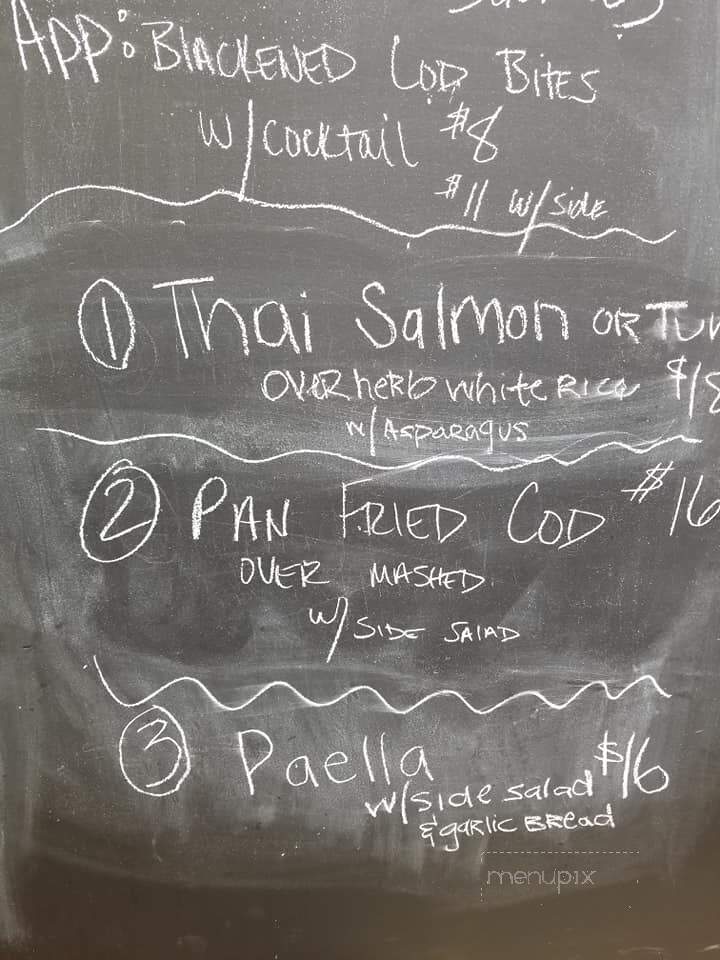 APP: BLACKENED COD BITES
W/COCKTAIL $8
$11 W/SIDE
① Thai Salmon OR TU
OVER herb white RICE $18
w/ASPARAGUS
② PAN FRIED COD $16
OVER MASHED
W/ SIDE SALAD
③ Paella $16
w/side salad
& garlic BREAD
menupix